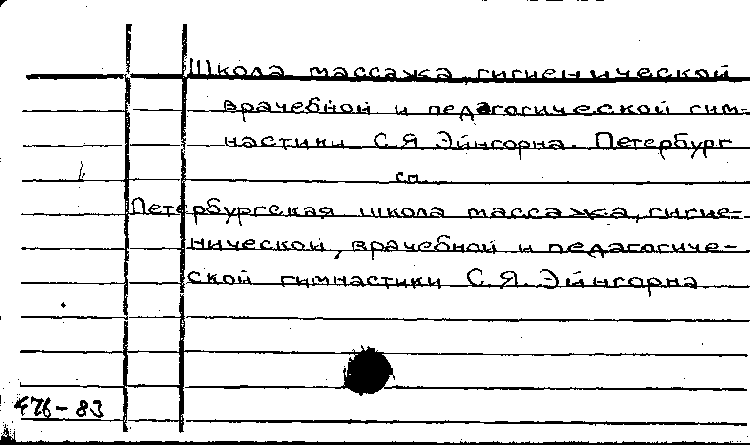 Школа массажа, гигиенической
врачебной и педагогической гим-
настики С.Я. Эйнгорна. Петербург
см.
Петербургская школа массажа, гигие-
нической, врачебной и педагогиче-
ской гимнастики С.Я. Эйнгорна
476-83